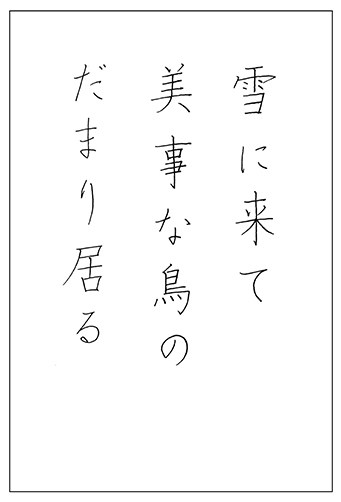 雪に来て
美事な鳥の
だまり居る